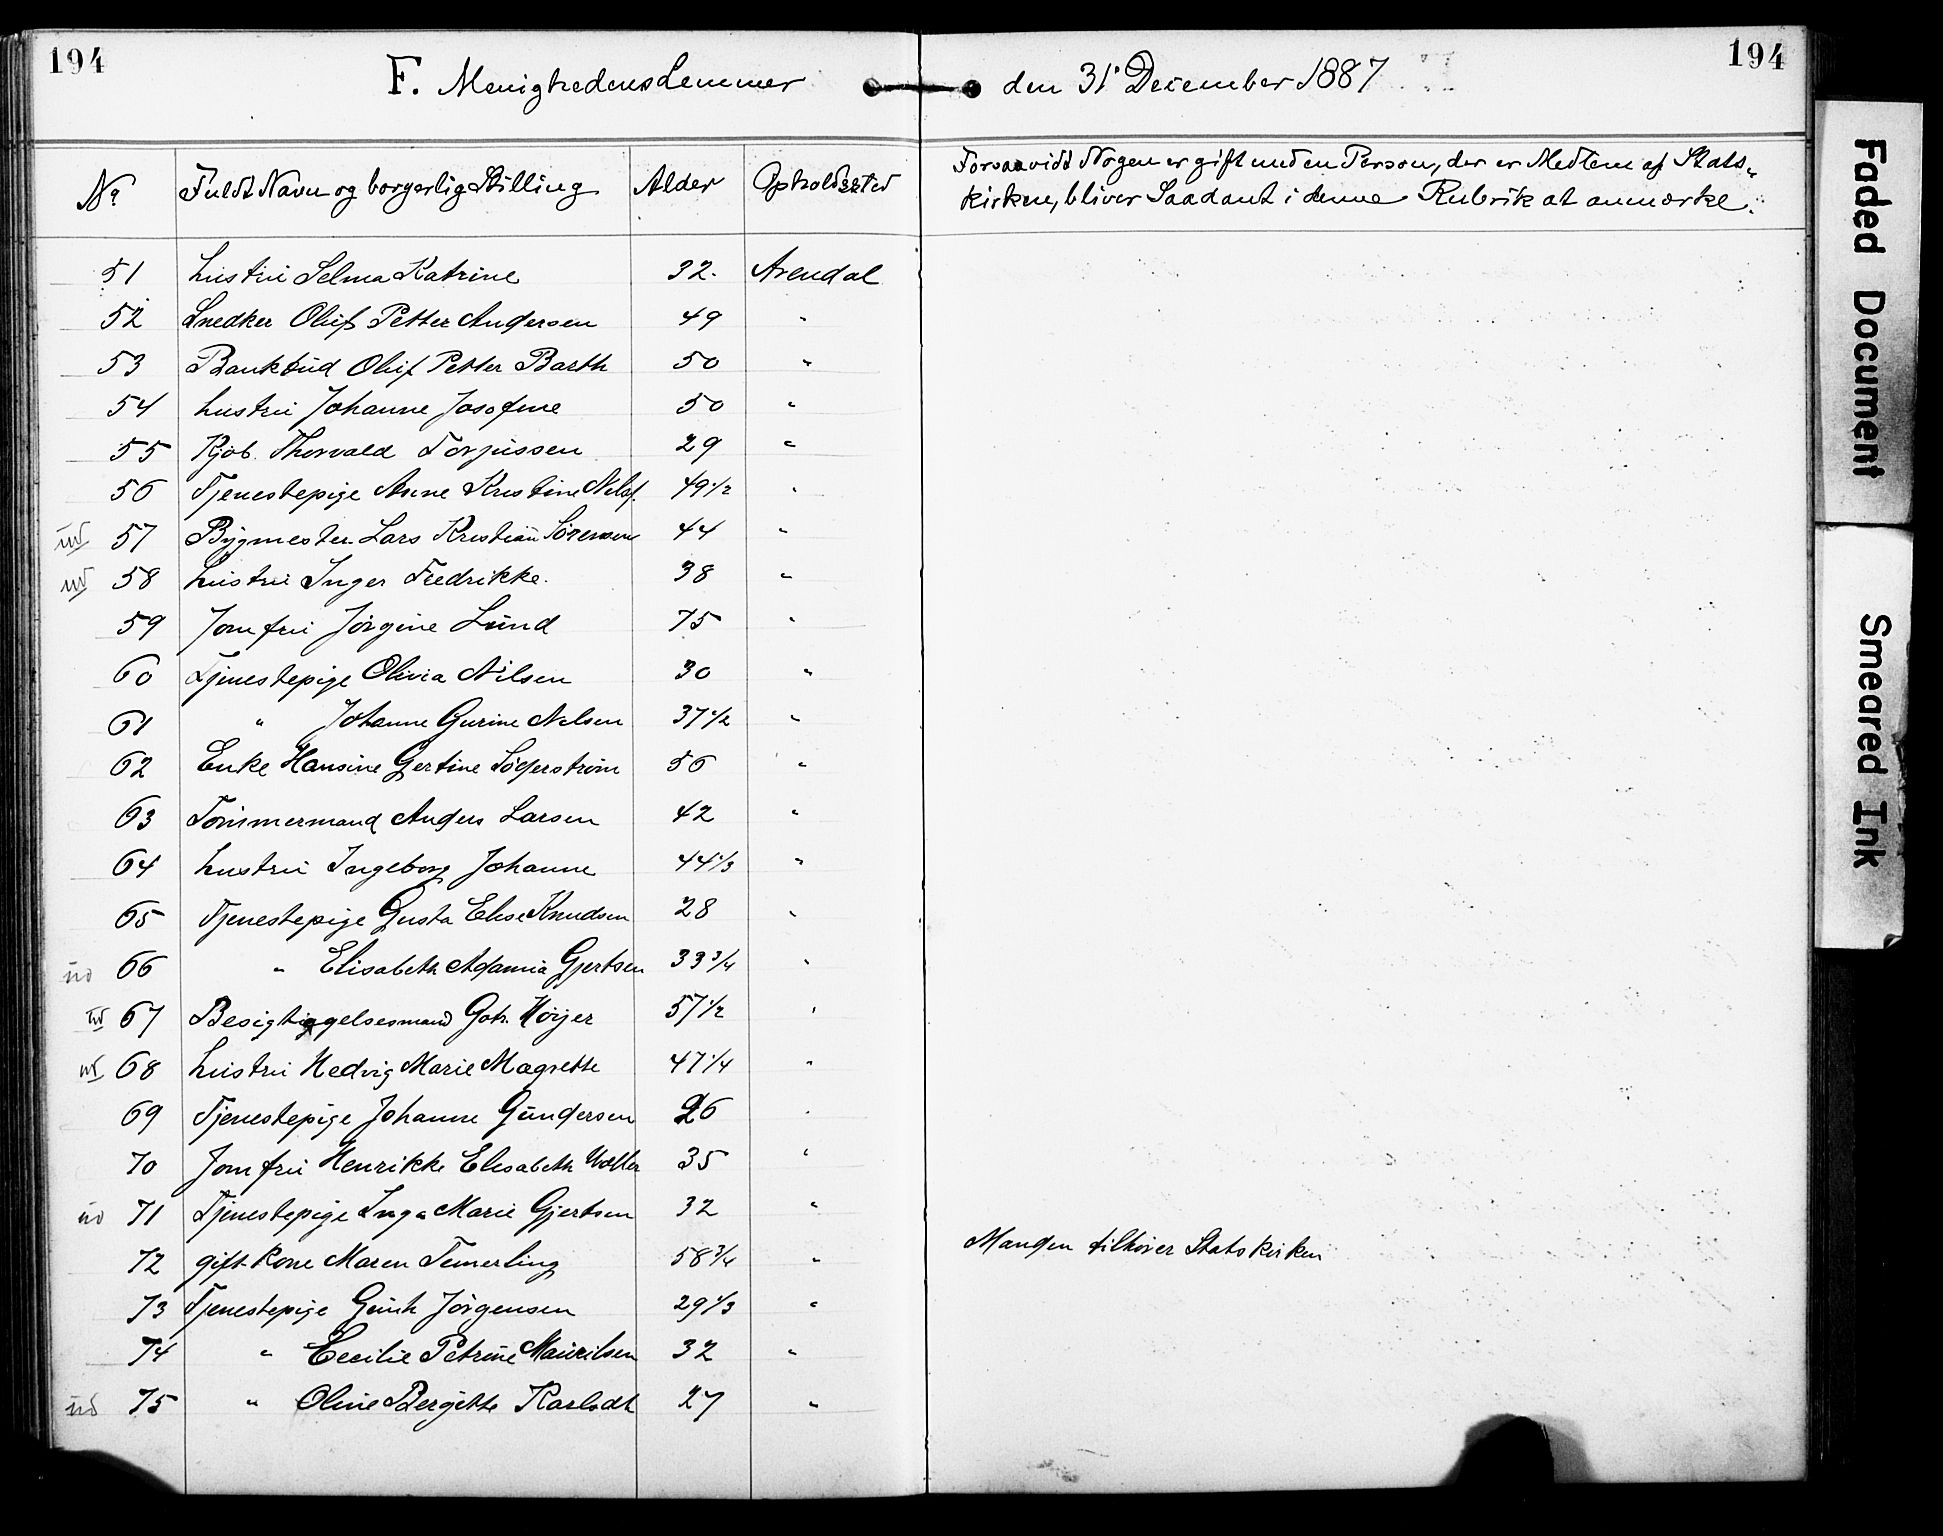 194
F. Menighedens Lemmer den 31' December 1887
194
No Fuldt Navn og borgerlig Stilling Alder Opholdssted Forsaavidt Nogen er gift med en Person, der er Medlem af Stats-
kirken, bliver Saadant i denne Rubrik at anmærke.
51 hustru Selma Katrine 32. Arendal
52 Snedker Oluf Petter Andersen 49 "
53 Bankbud Oluf Petter Barth 50 "
54 hustru Johanne Josofine 50 "
55 Kjøb. Thorvald Torjussen 29 "
56 Tjenestepige Anne Kristine Nilsf. 49 1/2 "
ud 57 Bygmester Lars Kristian Sörensen 44 "
ud 58 hustru Inger Fredrikke. 38 "
59 Jomfru Jörgine Lund 75 "
60 Tjenestepige Olivia Nilsen 30 "
61 " Johanne Gurine Nilsen 37 1/2 "
62 Enke Hansine Gertine Söderström 56 "
63 Tömmermand Anders Larsen 42 "
64 hustru Ingeborg Johanne 44 1/3 "
65 Tjenestepige Gusta Elise Knudsen 28 "
ud 66 " Elisabeth Adamia Gjertsen 33 3/4 "
ud 67 Besigtiggelsesmand Goth. Höyer 57 1/2 "
ud 68 hustru Hedvig Marie Magrette 47 1/4 "
69 Tjenestepige Johanne Gundersen 26 "
70 Jomfru Henrikke Elisabeth 35 "
ud 71 Tjenestepige Inga Marie Gjertsen 32 "
72 gift Kone Maren Temerling 58 3/4 " Manden tilhörer Statskirken
73 Tjenestepige Gunh Jörgensen 29 1/3 "
74 " Cecilie Petrine Mauritsen 32 "
ud 75 " Oline Bergitte Karlsdt 27 "
Faded Document
Smeared Ink